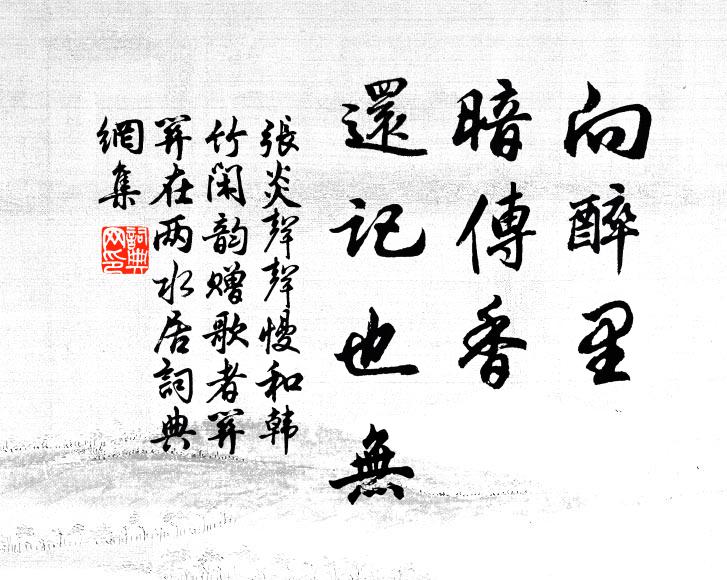 向醉里
暗傳香
還记也無
張炎聲聲慢和韩
竹閑韵赠歌者關
關在两水居詞典
網集
詞典
网印